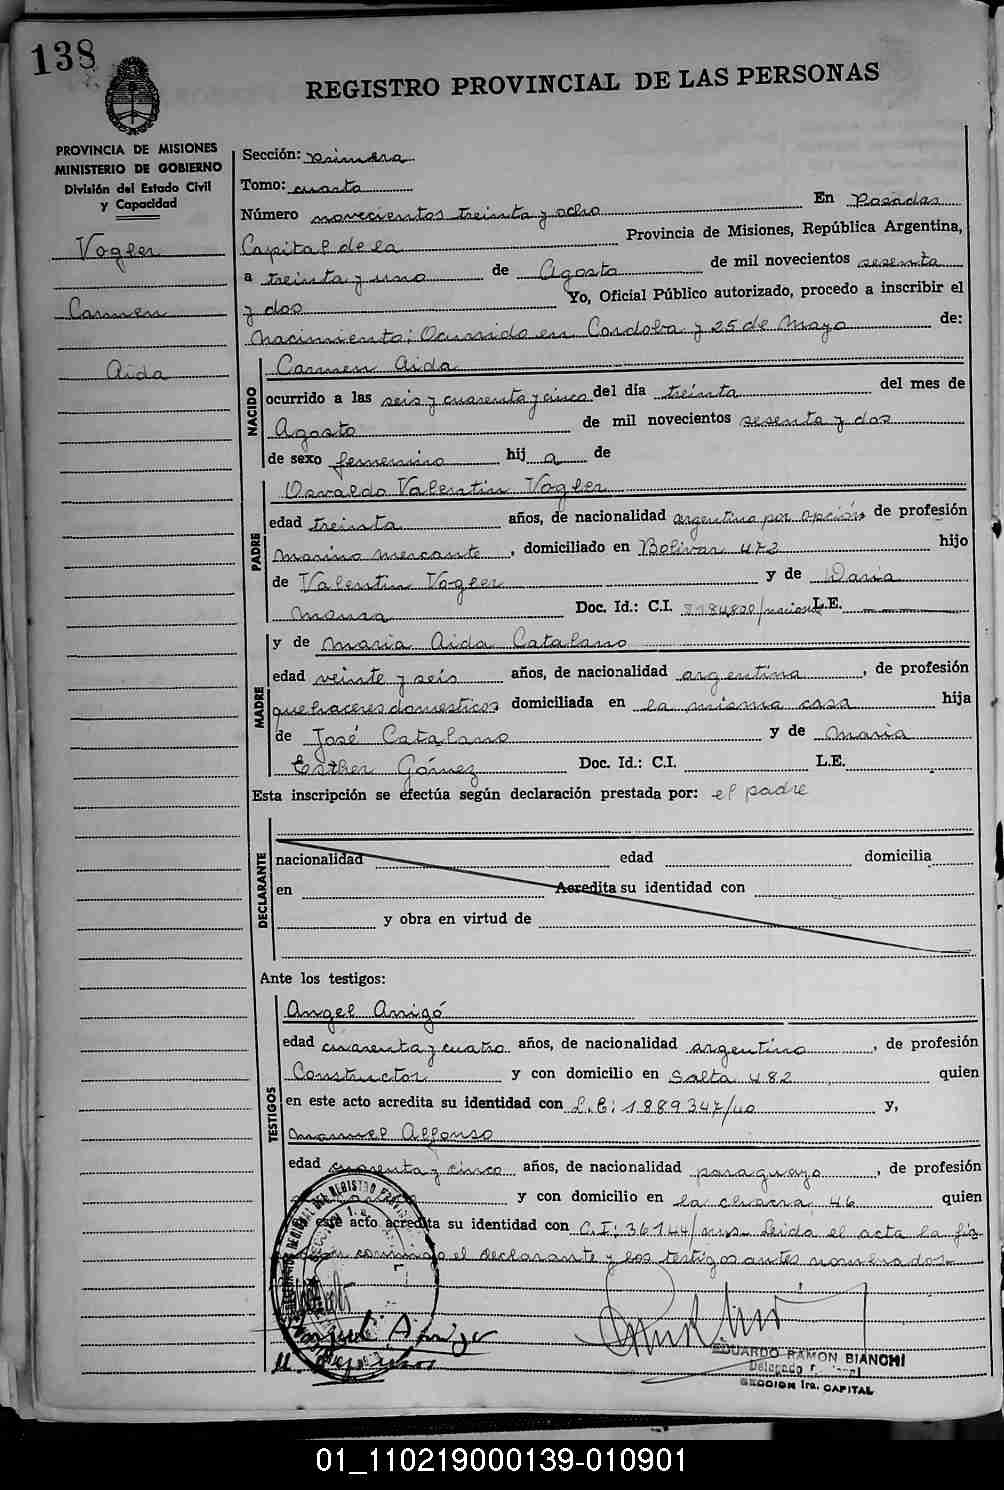 138
REGISTRO PROVINCIAL DE LAS PERSONAS
PROVINCIA DE MISIONES
MINISTERIO DE GOBIERNO
División del Estado Civil
y Capacidad
Vogler
Carmen
Aida
Sección: primera
Tomo: cuarto
Número novecientos treinta y ocho En Posadas
Capital de la Provincia de Misiones, República Argentina,
a treinta y uno de Agosto de mil novecientos sesenta
y dos Yo, Oficial Público autorizado, procedo a inscribir el
Nacimiento; Ocurrido en Cordoba y 25 de Mayo de:
NACIDO
Carmen Aida
ocurrido a las seis y cuarenta y cinco del día treinta del mes de
Agosto de mil novecientos sesenta y dos
de sexo femenino hij a de
PADRE
Osvaldo Valentin Vogler
edad treinta años, de nacionalidad argentino por opción de profesión
marino mercante, domiciliado en Bolivar 472 hijo
de Valentin Vogler y de Daria
Doc. Id.: C.I. L.E.
MADRE
y de Maria Aida Catalano
edad veinte y seis años, de nacionalidad argentina, de profesión
quehaceres domesticos domiciliada en la misma casa hija
de José Catalano y de Maria
Esther Gómez Doc. Id.: C.I. L.E.
Esta inscripción se efectúa según declaración prestada por: el padre
DECLARANTE
nacionalidad edad domicilia
en Acredita su identidad con
y obra en virtud de
Ante los testigos:
TESTIGOS
Angel Arrigó
edad cuarenta y cuatro años, de nacionalidad argentino, de profesión
Constructor y con domicilio en Salta 482 quien
en este acto acredita su identidad con L.E: 1889347/40 y,
Manuel Alfonso
edad cuarenta y cinco años, de nacionalidad paraguayo, de profesión
y con domicilio en la chacra 46 quien
este acto acredita su identidad con C.I: 36144/mis. Leida el acta la fir
conmigo el declarante y los testigos antes nombrados
EDUARDO RAMON BIANCHI
Delegado
SECCION 1ra. CAPITAL
01_110219000139-010901